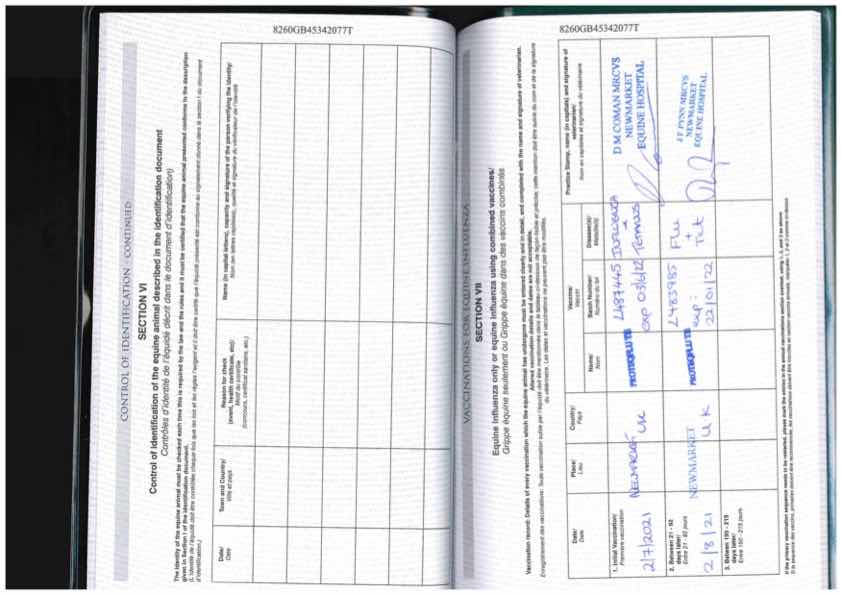 8260GB45342077T
CONTROL OF IDENTIFICATION - CONTINUED
SECTION VI
Control of identification of the equine animal described in the identification document
Contrôles d'identité de l'équidé décrit dans le document d'identification)
The identity of the equine animal must be checked each time this is required by the law and the rules and it must be certified that the equine animal presented conforms to the description
given in Section I of the identification document.
(L'identité de l'équidé doit être contrôlée chaque fois que les lois et les règles l'exigent et il doit être certifié que l'équidé présenté est conforme au signalement donné dans la section I du document
d'identification.)
Date/
Date
Town and Country/
Ville et pays
Reason for check
(event, health certificate, etc)/
Motif du contrôle
(concours, certificat sanitaire, etc.)
Name (in capital letters), capacity and signature of the person verifying the identity/
Nom (en lettres capitales), qualité et signature du vérificateur de l'identité
8260GB45342077T
VACCINATIONS FOR EQUINE INFLUENZA
SECTION VII
Equine Influenza only or equine influenza using combined vaccines/
Grippe équine seulement ou Grippe équine dans des vaccins combinés
Vaccination record: Details of every vaccination which the equine animal has undergone must be entered clearly and in detail, and completed with the name and signature of veterinarian.
Altered vaccination details and dates are not acceptable.
Enregistrement des vaccinations: Toute vaccination subie par l'équidé doit être mentionnée dans le tableau ci-dessous de façon lisible et précise; cette mention doit être suivie du nom et de la signature
du vétérinaire. Les dates et vaccinations ne peuvent pas être modifiés.
Date/
Date
Place/
Lieu
Country/
Pays
Vaccine/
Vaccin
Name/
Nom
Batch Number/
Numéro du lot
Disease(s)/
Maladie(s)
Practice Stamp, name (in capitals) and signature of
veterinarian/
Nom en capitales et signature du vétérinaire
1. Initial Vaccination/
Première vaccination
2/7/2021
NEWMARKET
UK
PROTEQFLU TE
L487445
exp 03/6/22
INFLUENZA
+
Tetanus
D M COMAN MRCVS
NEWMARKET
EQUINE HOSPITAL
2. Between 21 - 92
days later/
Entre 21 - 92 jours
2/8/21
NEWMARKET
UK
PROTEQFLU TE
L483985
exp:
22/01/22
Flu
+
Tet
NEWMARKET
EQUINE HOSPITAL
3. Between 150 - 215
days later/
Entre 150 - 215 jours